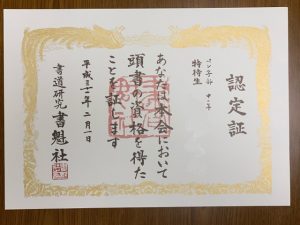 認定証
特待生
あなたは本会において
頭書の資格を得た
ことを証します
平成三十一年二月一日
書道研究 書魁社